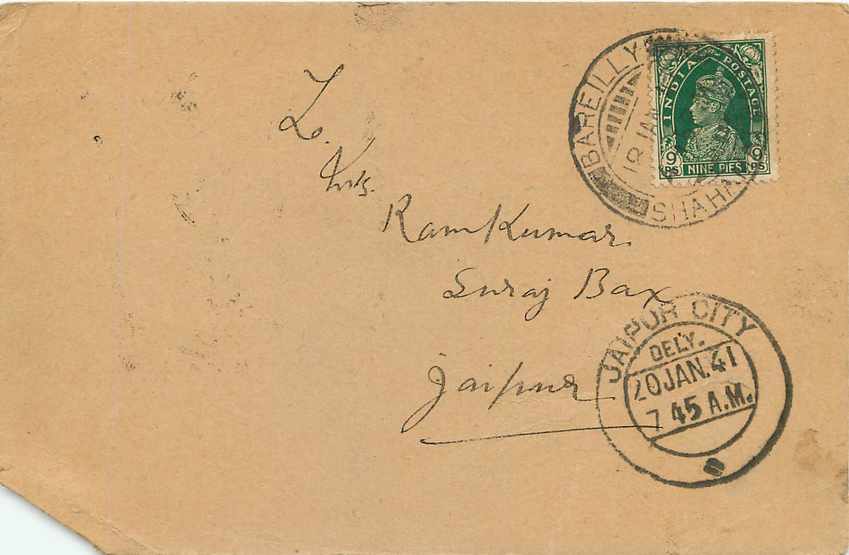 BAREILLY
SHAHA
INDIA POSTAGE
9 PS
9 PS
NINE PIES
Ram Kumar
Suraj Bax
Jaipur
JAIPUR CITY
DELY.
20 JAN. 41
7 45 A.M.